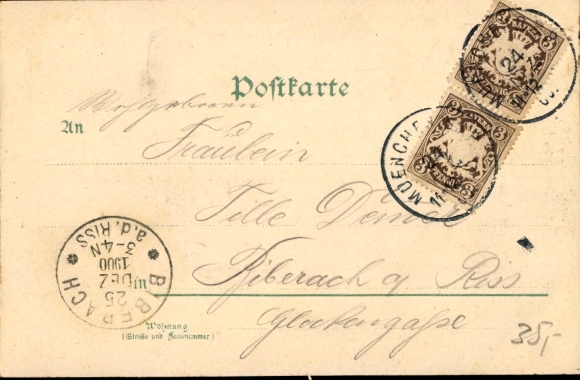 Postkarte
Wohlgeboren
An
Fräulein
Tille
Biberach a/ Riss
in
Glockengaße
Wohnung
(Straße und Hausnummer)
BIBERACH
a.d. RISS
25
DEZ
1900
3-4N
MUENCHEN
24
BAYERN
3
3
PFENNIG
MUENCHEN
BAYERN
3
3
PFENNIG
35,-